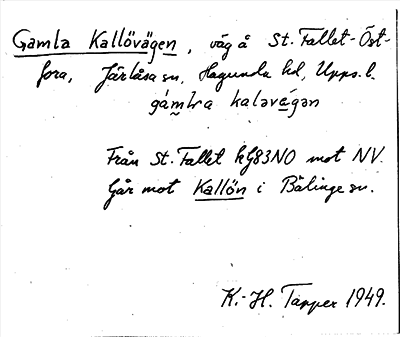 Gamla Kallövägen, väg å St. Fallet-Öst-
fora, Järlåsa sn, Hagunda hd, Upps. l.
gámlra kalavégan
Från St. Fallet kf83NO mot NV.
Går mot Kallön i Bälinge sn.
K.-H. Tapper 1949.